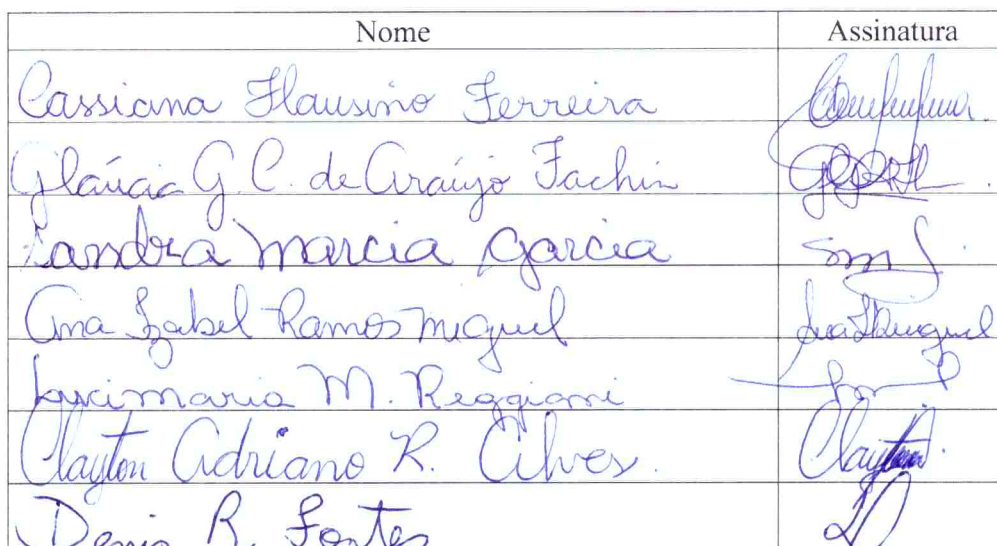 Nome Assinatura
Cassiana Flausino Ferreira
Gláucia G. C. de Araújo Fachin
Sandra Marcia Garcia
Ana Izabel Ramos Miguel
Lucimaria M. Reggiani
Clayton Adriano R. Alves. Clayton
Denis R. Fontes